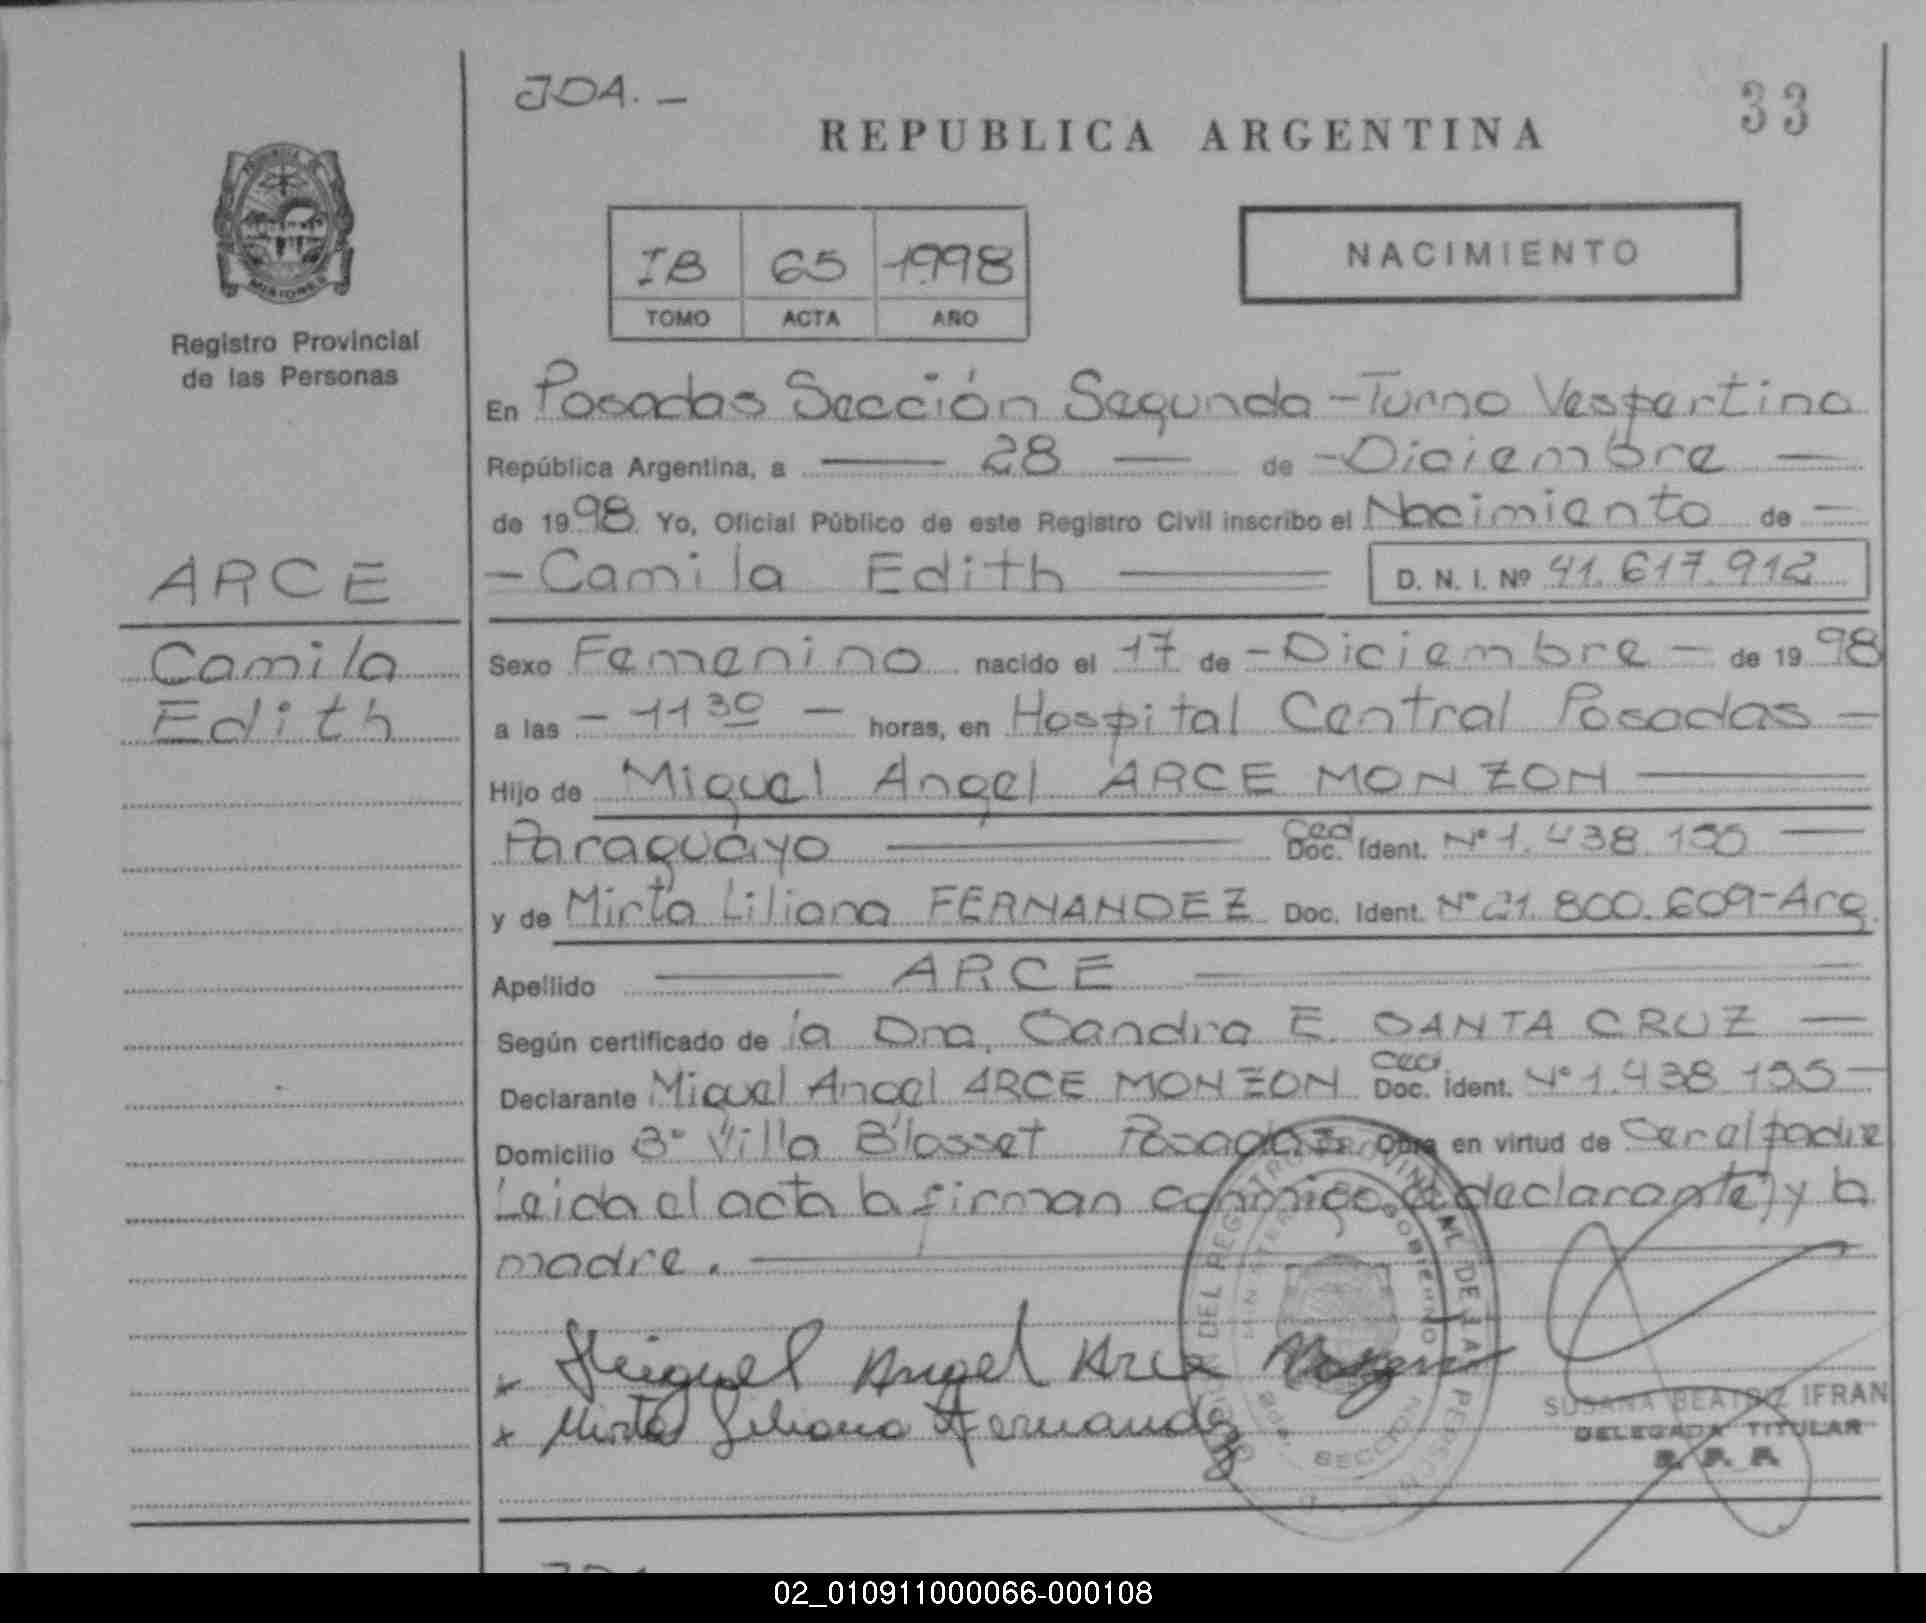 JDA.-
33
REPUBLICA ARGENTINA
IB 65 1998
TOMO ACTA AÑO
NACIMIENTO
MISIONES
Registro Provincial
de las Personas
En Posadas Sección Segunda - Turno Vespertino
República Argentina, a — 28 — de - Diciembre —
de 1998 Yo, Oficial Público de este Registro Civil inscribo el Nacimiento de —
- Camila Edith —
D. N. I. Nº 41.617.912
ARCE
Camila
Edith
Sexo Femenino nacido el 17 de - Diciembre - de 1998
a las - 11 30 - horas, en Hospital Central Posadas -
Hijo de Miguel Angel ARCE MONZON —
Paraguayo — Ced Doc. Ident. Nº 1.438.155 —
y de Mirta Liliana FERNANDEZ Doc. Ident. Nº 21.800.609-Arg.
Apellido — ARCE —
Según certificado de la Dra. Sandra E. SANTA CRUZ —
Declarante Miguel Angel ARCE MONZON Ced Doc. Ident. Nº 1.438.155 -
Domicilio Bº Villa Blosset Posadas Obra en virtud de Ser el padre
Leida el acta la firman conmigo el declarante y la
madre. —
x Miguel Angel Arce Monzon
x Mirta Liliana Fernandez
SUSANA BEATRIZ IFRAN
DELEGADA TITULAR
R. P. P.
02_010911000066-000108